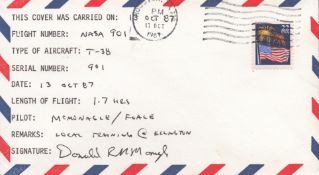 THIS COVER WAS CARRIED ON: OCT 87
FLIGHT NUMBER: NASA 901
TYPE OF AIRCRAFT: T-38
SERIAL NUMBER: 901
DATE: 13 OCT 87
LENGTH OF FLIGHT: 1.7 HRS
PILOT: MCMONAGLE /
REMARKS: LOCAL TRAINING @ ELLINGTON
SIGNATURE: Donald R McMonagle
PM
OCT
1987
22